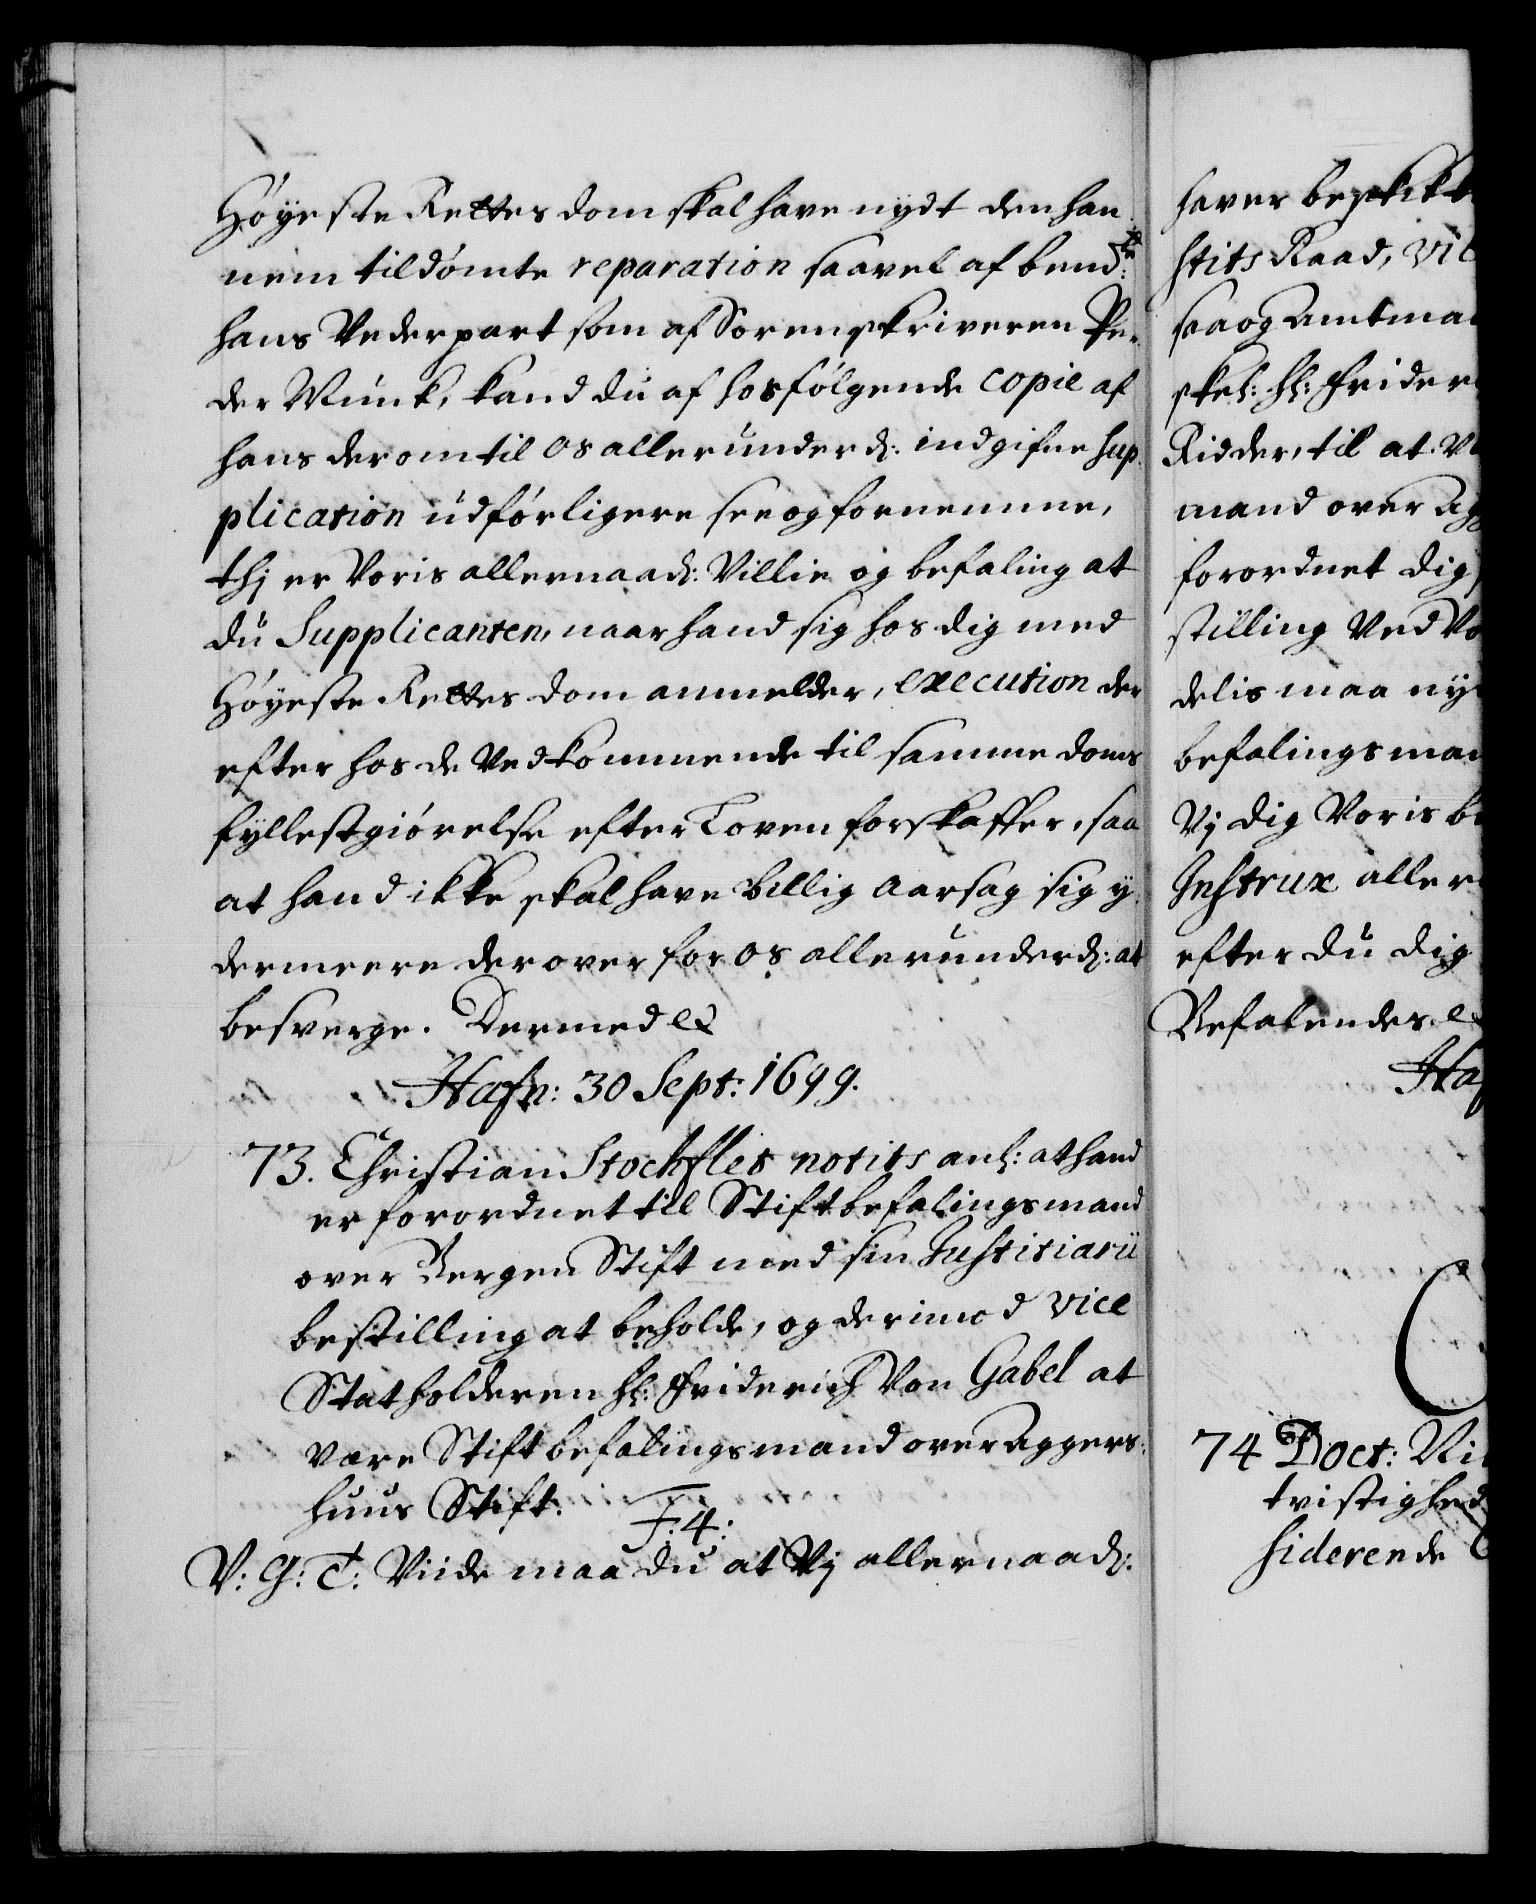 Høyeste Rettes dom skal have nydt den han
nem tildømte reparation saavel af bemd:te
hans Vederpart som af Sorenskriveren Pe-
der Munk, kand du af hosfølgende copie af
hans derom til os allerunderd: indgifne sup-
plication udførligere see og fornemme,
thj er Voris allernaad: Villie og befaling at
du Supplicanten, naar hand sig hos dig med
Høyeste Rettes dom anmelder, execution der
efter hos de Vedkommende til samme doms
fyllestgiørelse efter Loven forskaffer, saa
at hand ikke skal have billig Aarsag sig y-
dermeere derover for os allerunderd: at
besverge. Dermed ec
Hafn: 30 Sept: 1699.
73. Christian Stochflet notits anl: at hand
er forordnet till Stiftbefalingsmand
over Bergen Stift med sin Justitiarii
bestilling at beholde, og derimod Vice
Statholderen hl: Friderich Von Gabel at
være Stiftbefalingsmand over Aggers-
huus Stift.
F: 4:
V: G: T: Viide maa du at Vj allernaad:
haver beskikt
stits Raad, Vic
saa og Amtma
skel: hl: Frider
Ridder, til at V
mand over Agg
forordnet dig
stilling Ved Vo
delis maa ny
befalingsman
Vj dig Voris b
Instrux aller
efter du dig
Befalendes e
Haf
74 Doct: Ni
tvistighed
siderende